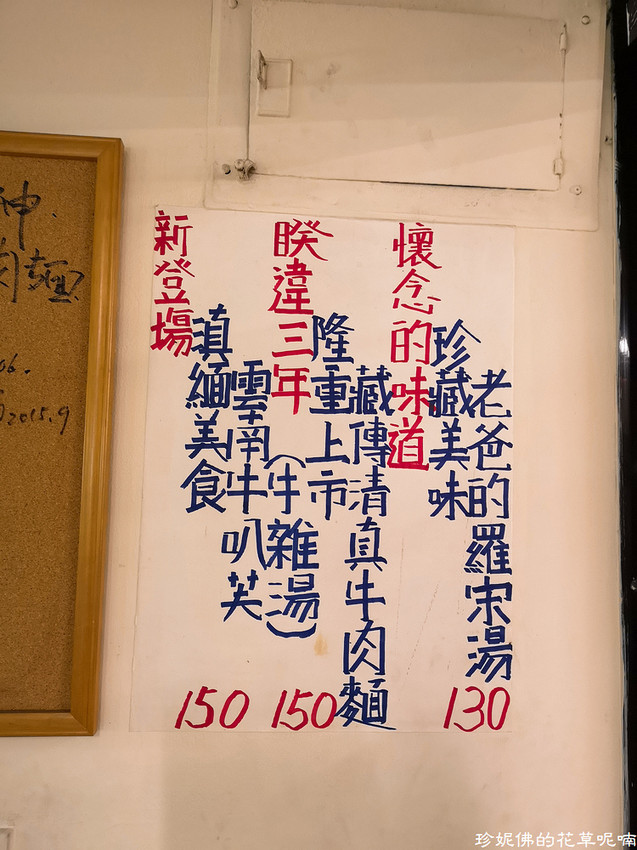 懷念的味道
珍藏美味
老爸的羅宋湯
130
睽違三年
隆重上市
藏傳清真牛肉麵
150
新登場
滇緬美食
雲南牛叭芙
(牛雜湯)
150
神.
肉麵
06.
2015.9
珍妮佛的花草呢喃